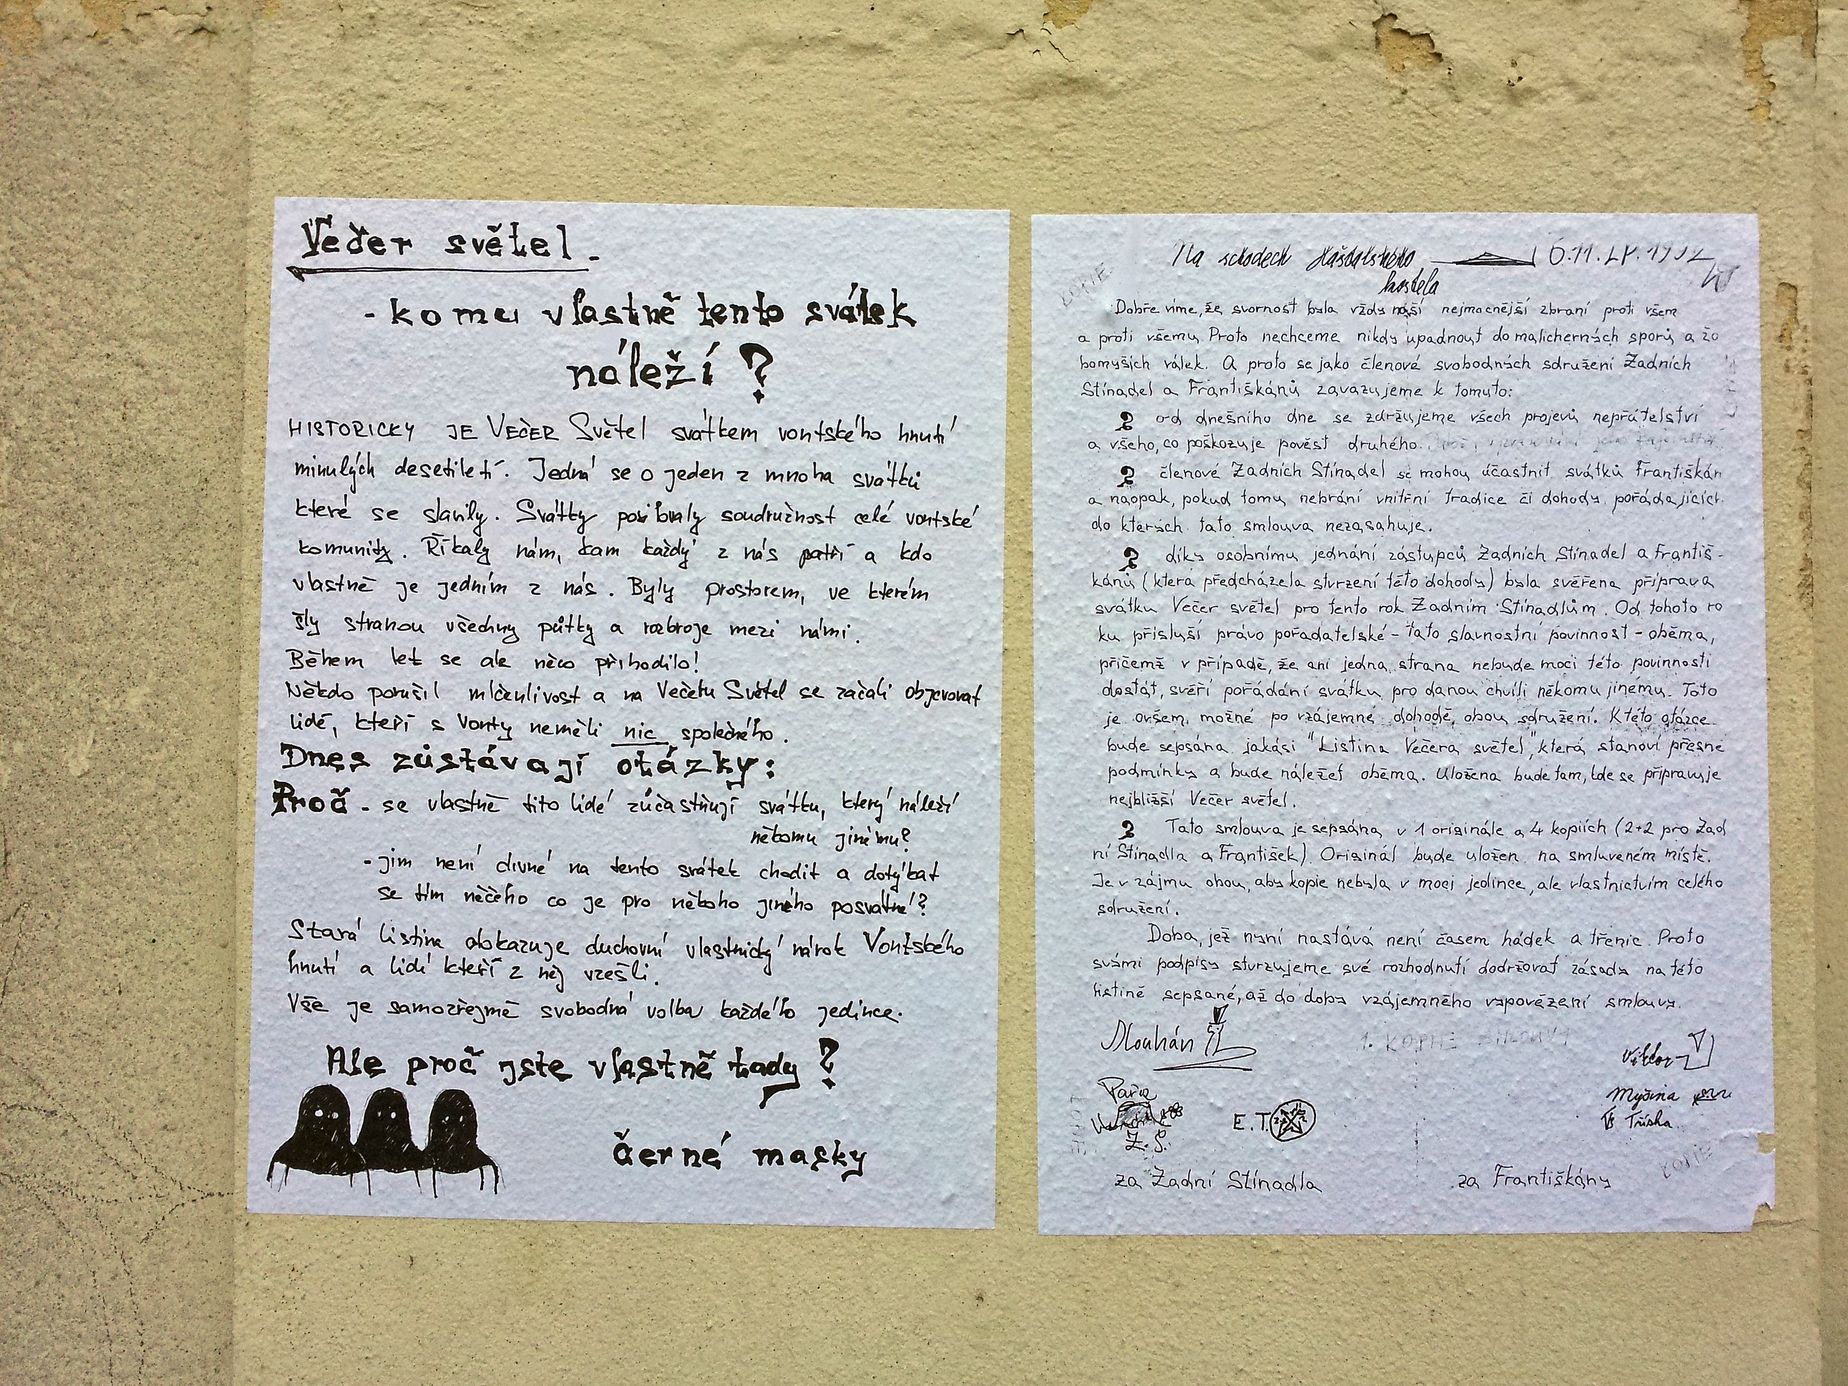 Večer světel.
- komu vlastně tento svátek
náleží?
HISTORICKY JE VEČER Světel svátkem vontského hnutí
minulých desetiletí. Jedná se o jeden z mnoha svátků
které se slavily. Svátky posilovaly soudružnost celé vontské
komunity. Říkaly nám, kam každý z nás patří a kdo
vlastně je jedním z nás. Byly prostorem, ve kterém
šly stranou všechny půtky a rozbroje mezi námi.
Během let se ale něco přihodilo!
Někdo porušil mlčenlivost a na Večeru Světel se začali objevovat
lidé, kteří s Vonty neměli nic společného.
Dnes zůstávají otázky:
Proč - se vlastně tito lidé zúčastňují svátku, který náleží
někomu jinému?
- jim není divné na tento svátek chodit a dotýkat
se tím něčeho co je pro někoho jiného posvátné?
Stará listina dokazuje duchovní vlastnický nárok Vontského
hnutí a lidí kteří z něj vzešli.
Vše je samozřejmě svobodná volba každého jedince.
Ale proč jste vlastně tady?
černé masky
Na schodech Haštalského 6.11. LP. 1992
kostela
KOPIE
Dobře víme, že svornost byla vždy naší nejmocnější zbraní proti všem
a proti všemu. Proto nechceme nikdy upadnout do malicherných sporů a žo
bomyších válek. A proto se jako členové svobodných sdružení Zadních
Stínadel a Františkánů zavazujeme k tomuto:
? od dnešního dne se zdržujeme všech projevů nepřátelství
a všeho, co poškozuje pověst druhého.
? členové Zadních Stínadel se mohou účastnit svátků Františkán
a naopak, pokud tomu nebrání vnitřní tradice či dohody pořádajících
do kterých tato smlouva nezasahuje.
? díky osobnímu jednání zástupců Zadních Stínadel a Františ-
kánů (která předcházela stvrzení této dohody) byla svěřena příprava
svátku Večer světel pro tento rok Zadním Stínadlům. Od tohoto ro
ku přísluší právo pořadatelské - tato slavnostní povinnost - oběma,
přičemž v případě, že ani jedna strana nebude moci této povinnosti
dostát, svěří pořádání svátku pro danou chvíli někomu jinému. Toto
je ovšem, možné po vzájemné dohodě, obou sdružení. K této otázce
bude sepsána jakási "Listina Večera světel", která stanoví přesné
podmínky a bude náležet oběma. Uložena bude tam, kde se připravuje
nejbližší Večer světel.
? Tato smlouva je sepsána v 1 originále a 4 kopiích (2+2 pro Zad
ní Stínadla a František). Originál bude uložen na smluveném místě.
Je v zájmu obou, aby kopie nebyla v moci jedince, ale vlastnictvím celého
sdružení.
Doba, jež nyní nastává není časem hádek a třenic. Proto
svými podpisy stvrzujeme své rozhodnutí dodržovat zásady na této
listině sepsané, až do doby vzájemného vypovězení smlouvy.
1. KOPIE SMLOUVY
Dlouhán
Viktor
Myšina
Tříska
E.T.
Z.S.
KOPIE
za Zadní Stínadla
za Františkány